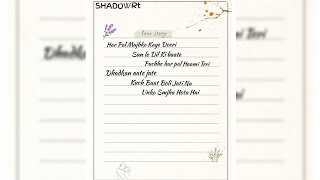 SHADOWRt
love story
Har Pal Mujhko Kaye Doori
Sun le Dil Ki baate
Puchhe har pal Haami Teri
Dhadkan aate jate
Kuch Baat Boli Jati Na
Unko Smjha Hota Hai